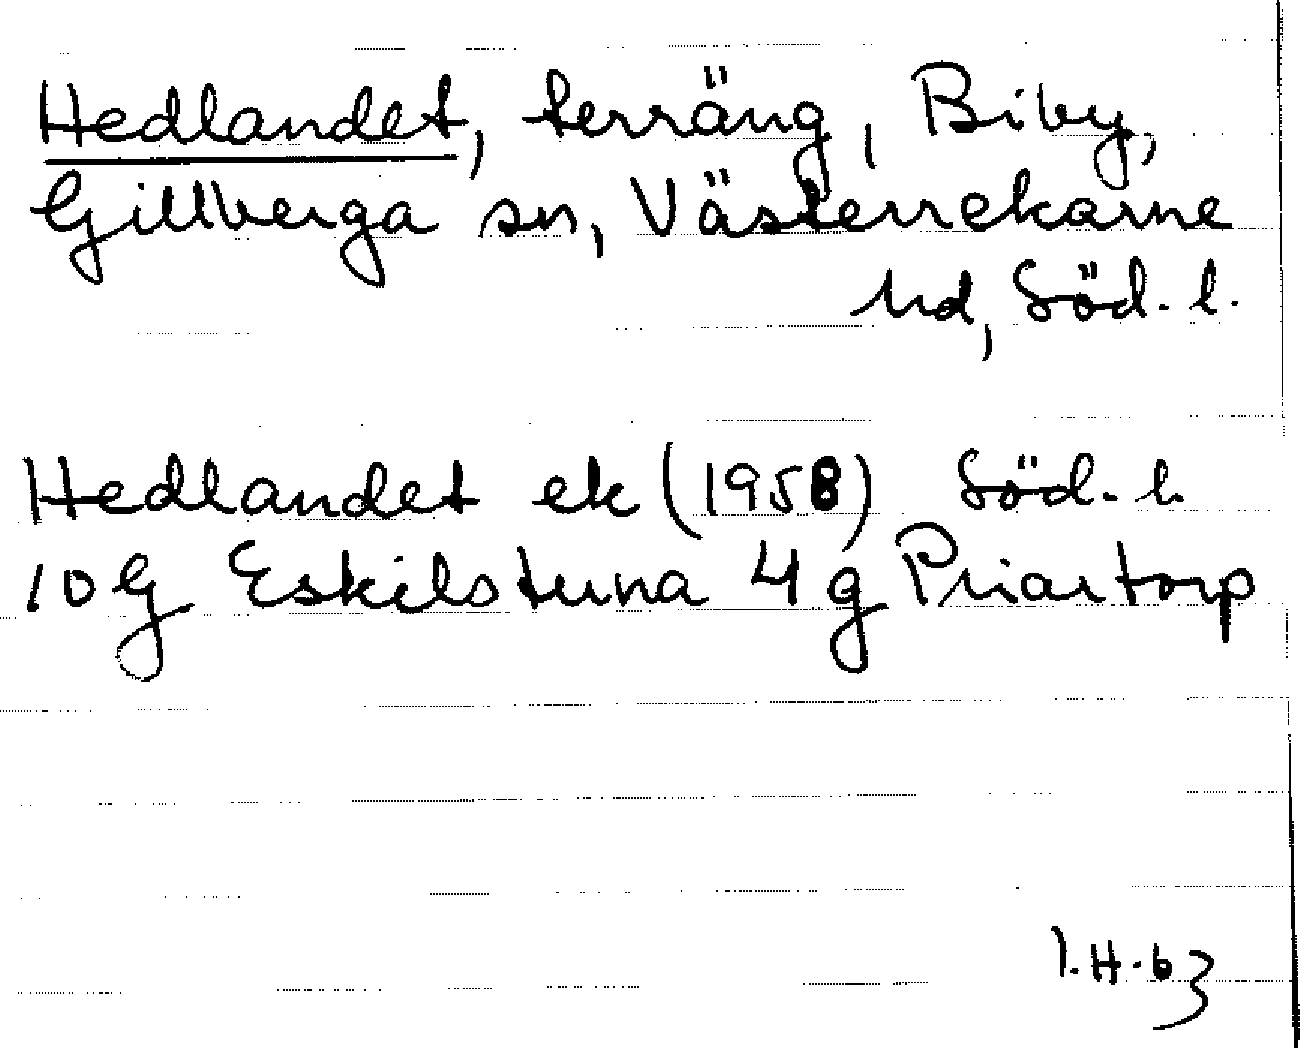 Hedlandet, terräng, Biby,
Gillberga sn, Västerrekarne
hd, Söd. l.
Hedlandet ek (1958) Söd. l.
10G Eskilstuna 4 g Priartorp
I.H.63